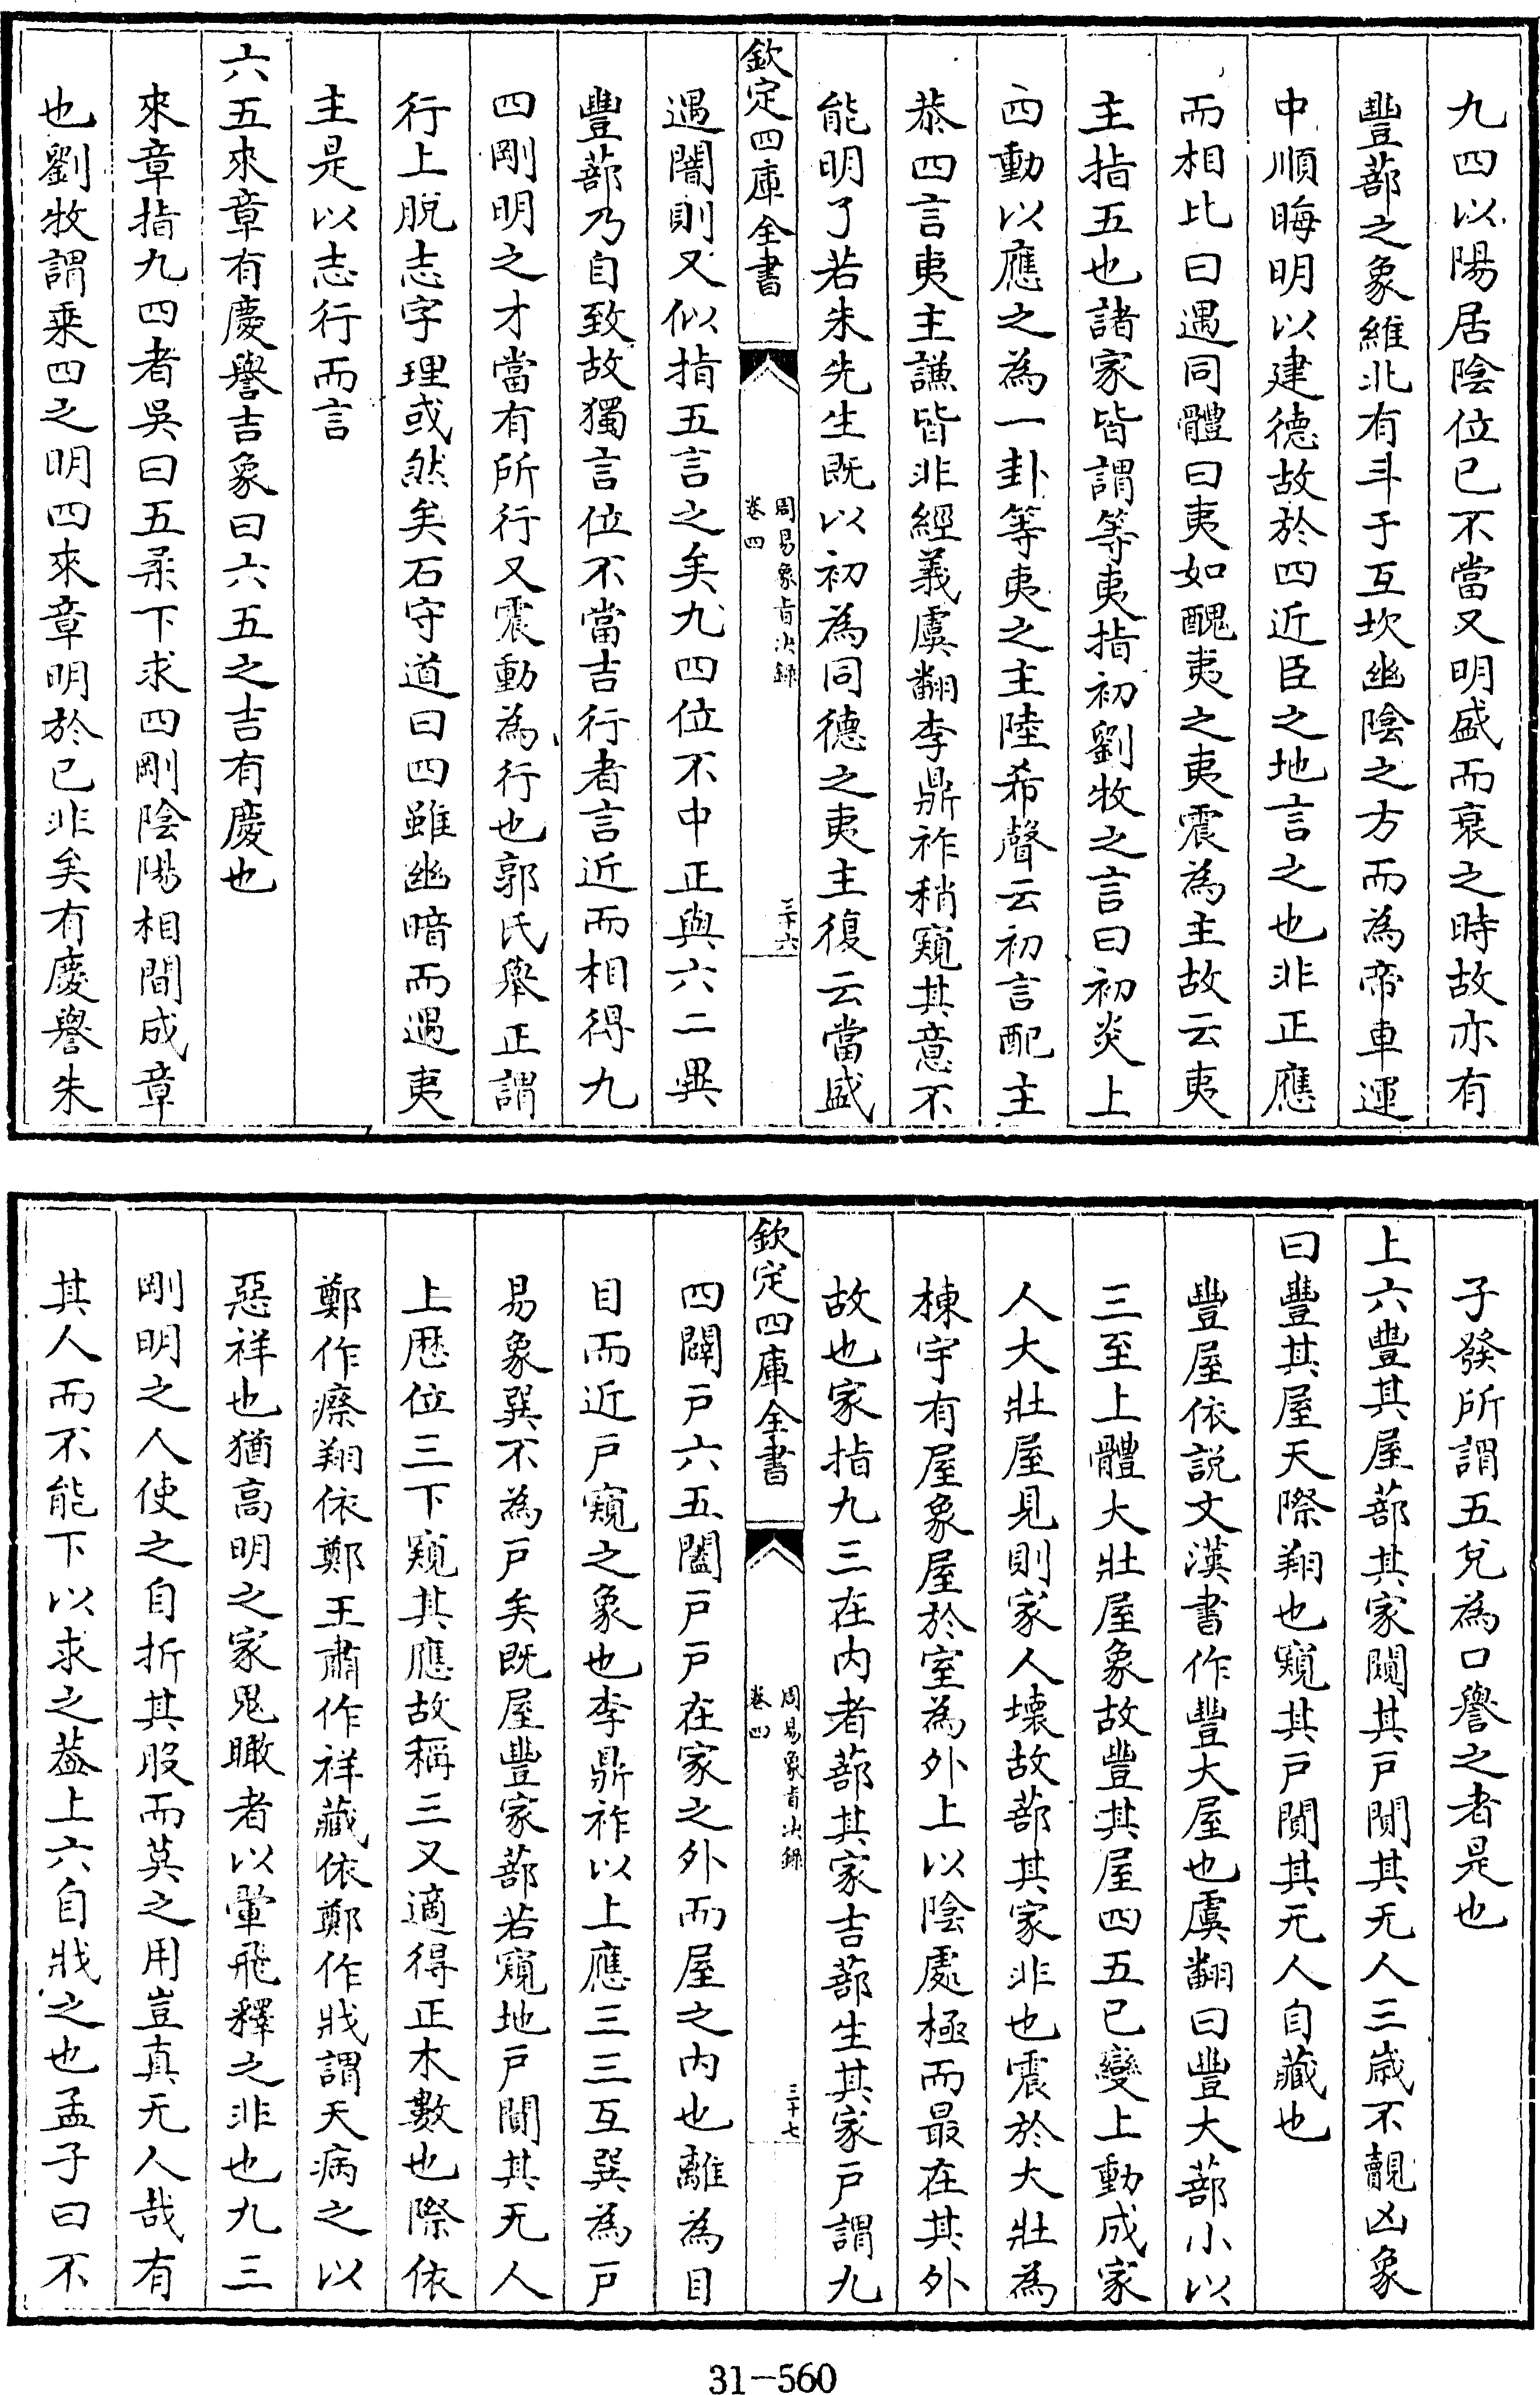 九四以陽居陰位已不當又明盛而衰之時故亦有
豐蔀之象維北有斗于互坎幽陰之方而為帝車運
中順晦明以建德故於四近臣之地言之也非正應
而相比曰遇同體曰夷如醜夷之夷震為主故云夷
主指五也諸家皆謂等夷指初劉牧之言曰初炎上
四動以應之為一卦等夷之主陸希聲云初言配主
恭四言夷主謙皆非經義虞翻李鼎祚稍窺其意不
能明了若朱先生既以初為同德之夷主復云當盛
欽定四庫全書
周易象旨決錄
卷四
三十六
遇闇則又似指五言之矣九四位不中正與六二異
豐蔀乃自致故獨言位不當吉行者言近而相得九
四剛明之才當有所行又震動為行也郭氏舉正謂
行上脫志字理或然矣石守道曰四雖幽暗而遇夷
主是以志行而言
六五來章有慶譽吉象曰六五之吉有慶也
來章指九四者吳曰五柔下求四剛陰陽相間成章
也劉牧謂乗四之明四來章明於己非矣有慶譽朱
子發所謂五兌為口譽之者是也
上六豐其屋蔀其家闚其戸闃其无人三歳不覿凶象
曰豐其屋天際翔也窺其戸闃其无人自藏也
豐屋依說文漢書作豐大屋也虞翻曰豐大蔀小以
三至上體大壯屋象故豐其屋四五已變上動成家
人大壯屋見則家人壞故蔀其家非也震於大壯為
棟宇有屋象屋於室為外上以陰處極而最在其外
故也家指九三在内者蔀其家吉蔀生其家戸謂九
欽定四庫全書
周易象旨決錄
卷四
三十七
四闢戸六五闔戸戸在家之外而屋之内也離為目
目而近戸窺之象也李鼎祚以上應三三互巽為戸
易象巽不為戸矣既屋豐家蔀若窺地戸闃其无人
上歴位三下窺其應故稱三又適得正木數也際依
鄭作瘵翔依鄭王肅作祥藏依鄭作戕謂天病之以
惡祥也猶高明之家鬼瞰者以翬飛釋之非也九三
剛明之人使之自折其股而莫之用豈真无人哉有
其人而不能下以求之葢上六自戕之也孟子曰不
31-560